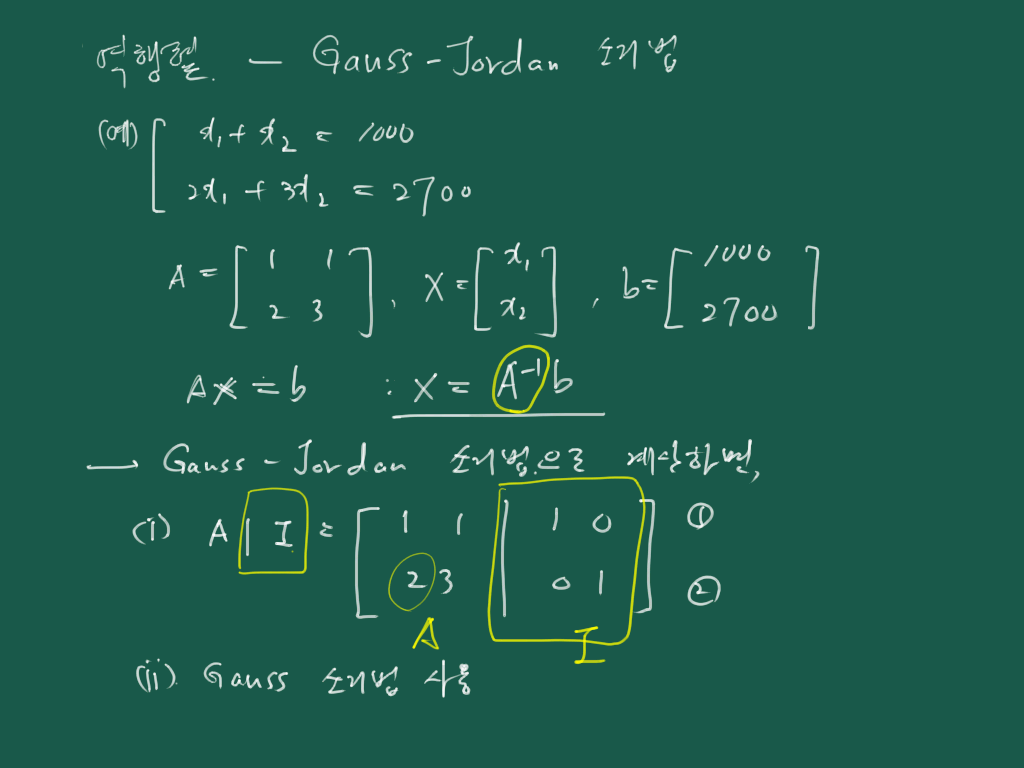 역행렬. — Gauss-Jordan 소거법
(예) [ x₁ + x₂ = 1000
2x₁ + 3x₂ = 2700
A = [ 1 1 ; 2 3 ], X = [ x₁ ; x₂ ], b = [ 1000 ; 2700 ]
AX = b : X = A⁻¹b
→ Gauss-Jordan 소거법으로 계산하면,
(i) A | I = [ 1 1 | 1 0 ; 2 3 | 0 1 ] ① ②
A I
(ii). Gauss 소거법 사용